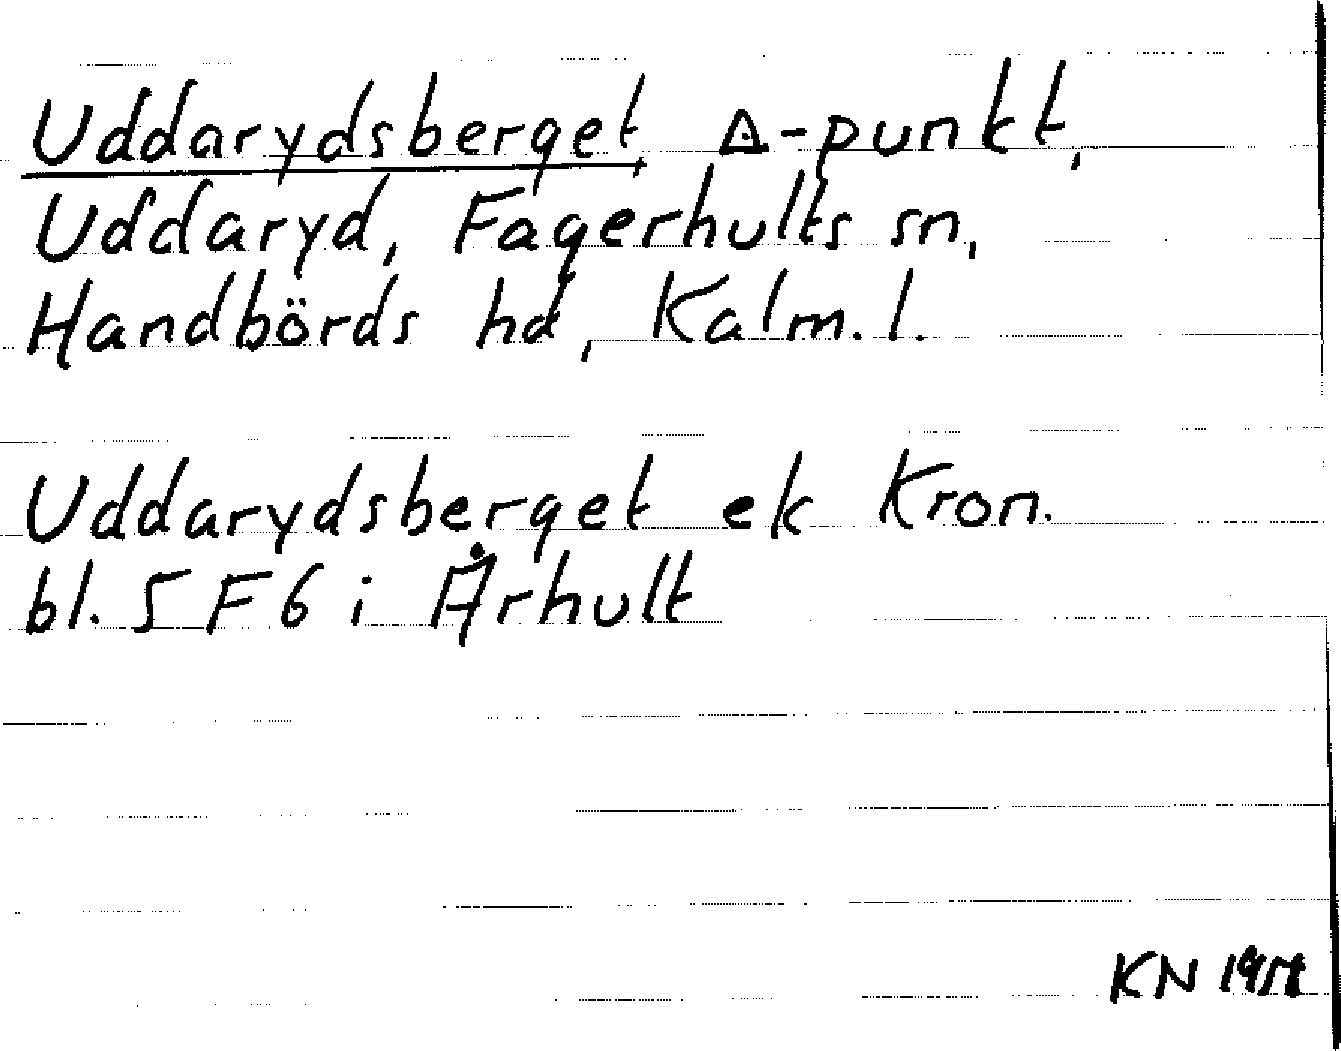 Uddarydsberget, ∆-punkt,
Uddaryd, Fagerhults sn,
Handbörds hd, Kalm. l.
Uddarydsberget ek Kron.
bl. 5 F 6 i Århult
KN